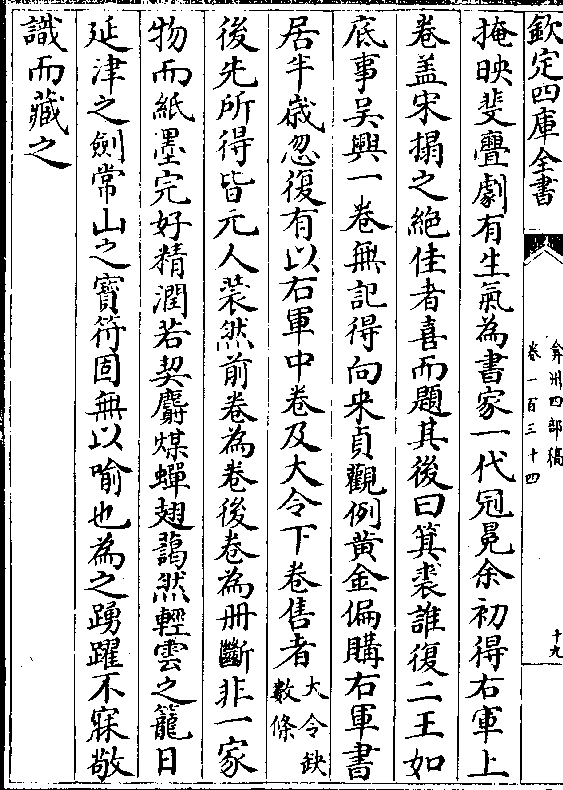 欽定四庫全書
弇州四部稿
卷一百三十四
十九
掩映斐亹劇有生氣為書家一代冠冕余初得右軍上
卷盖宋搨之絶佳者喜而題其後曰箕裘誰復二王如
底事吴興一卷無記得向來貞觀例黄金偏購右軍書
居半嵗忽復有以右軍中卷及大令下卷售者大令缺
數條
後先所得皆元人裝然前卷為卷後卷為冊斷非一家
物而紙墨完好精潤若契麝煤蟬翅藹然輕雲之籠日
延津之劍常山之寶符固無以喻也為之踴躍不寐敬
識而藏之